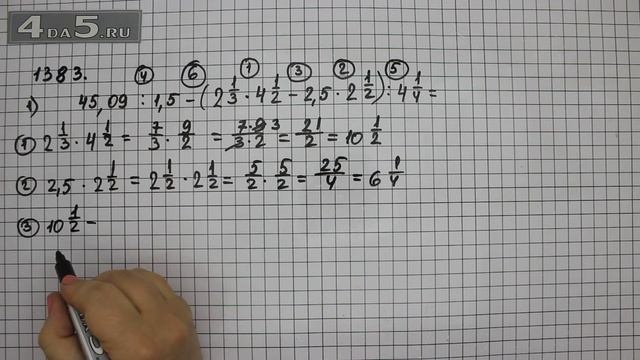 4DA5.RU
1383.
④ ⑥ ① ③ ② ⑤
1) 45,09 : 1,5 - (2 1/3 · 4 1/2 - 2,5 · 2 1/2) : 4 1/4 =
① 2 1/3 · 4 1/2 = 7/3 · 9/2 = 7·9 3/3·2 = 21/2 = 10 1/2
② 2,5 · 2 1/2 = 2 1/2 · 2 1/2 = 5/2 · 5/2 = 25/4 = 6 1/4
③ 10 1/2 -